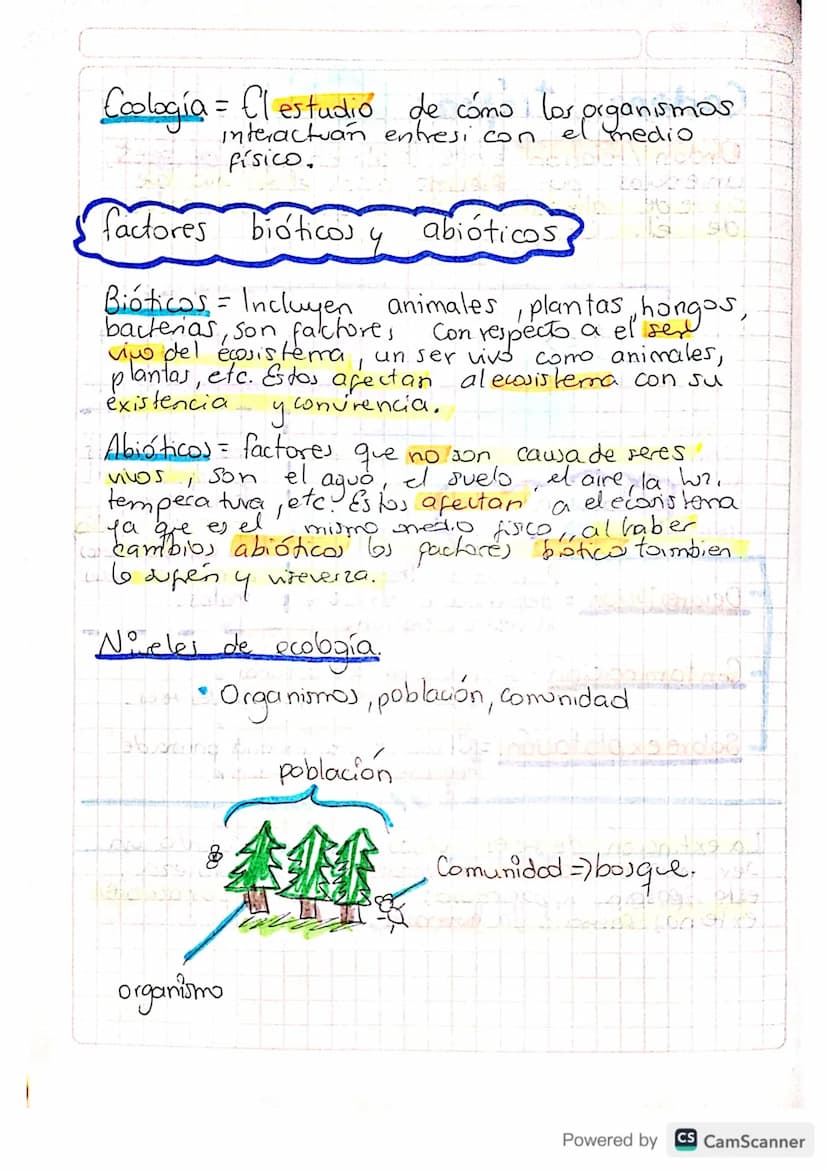 Ecología = El estudio de cómo los organismos
interactuán entresi con el medio
físico.
factores bióticos y abióticos
Bióticos = Incluyen animales, plantas, hongos,
bacterias, son factores con respecto a el ser
vivo del ecosistema, un ser vivo como animales,
plantas, etc. Estos afectan al ecosistema con su
existencia y convivencia.
Abióticos = factores que no son causa de seres
vivos, son el agua, el suelo, el aire, la luz,
temperatura, etc. Estos afectan a el ecosistema
ya que es el mismo medio físico, al haber
cambios abióticos los factores biótico tambien
lo sufren y viceversa.
Niveles de ecología.
• Organismos, población, comunidad
población
Comunidad => bosque.
organismo
Powered by CS CamScanner